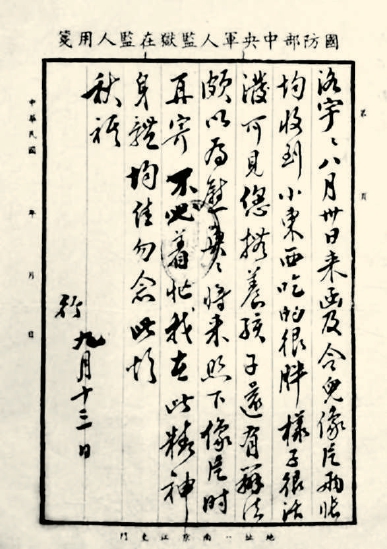 國防部中央軍人監獄在監人用箋
第 頁
洛宇：八月卅日来函及令兒像片兩帧
均收到小東西吃的很胖樣子很活
潑可見您撘養孩子還有辦法
頗以為慰 將来照下像片时
再寄不必着忙我在此精神
身體均佳勿念此頌
秋祺
衍 九月十三日
中華民國 年 月 日
地址：南京江東門